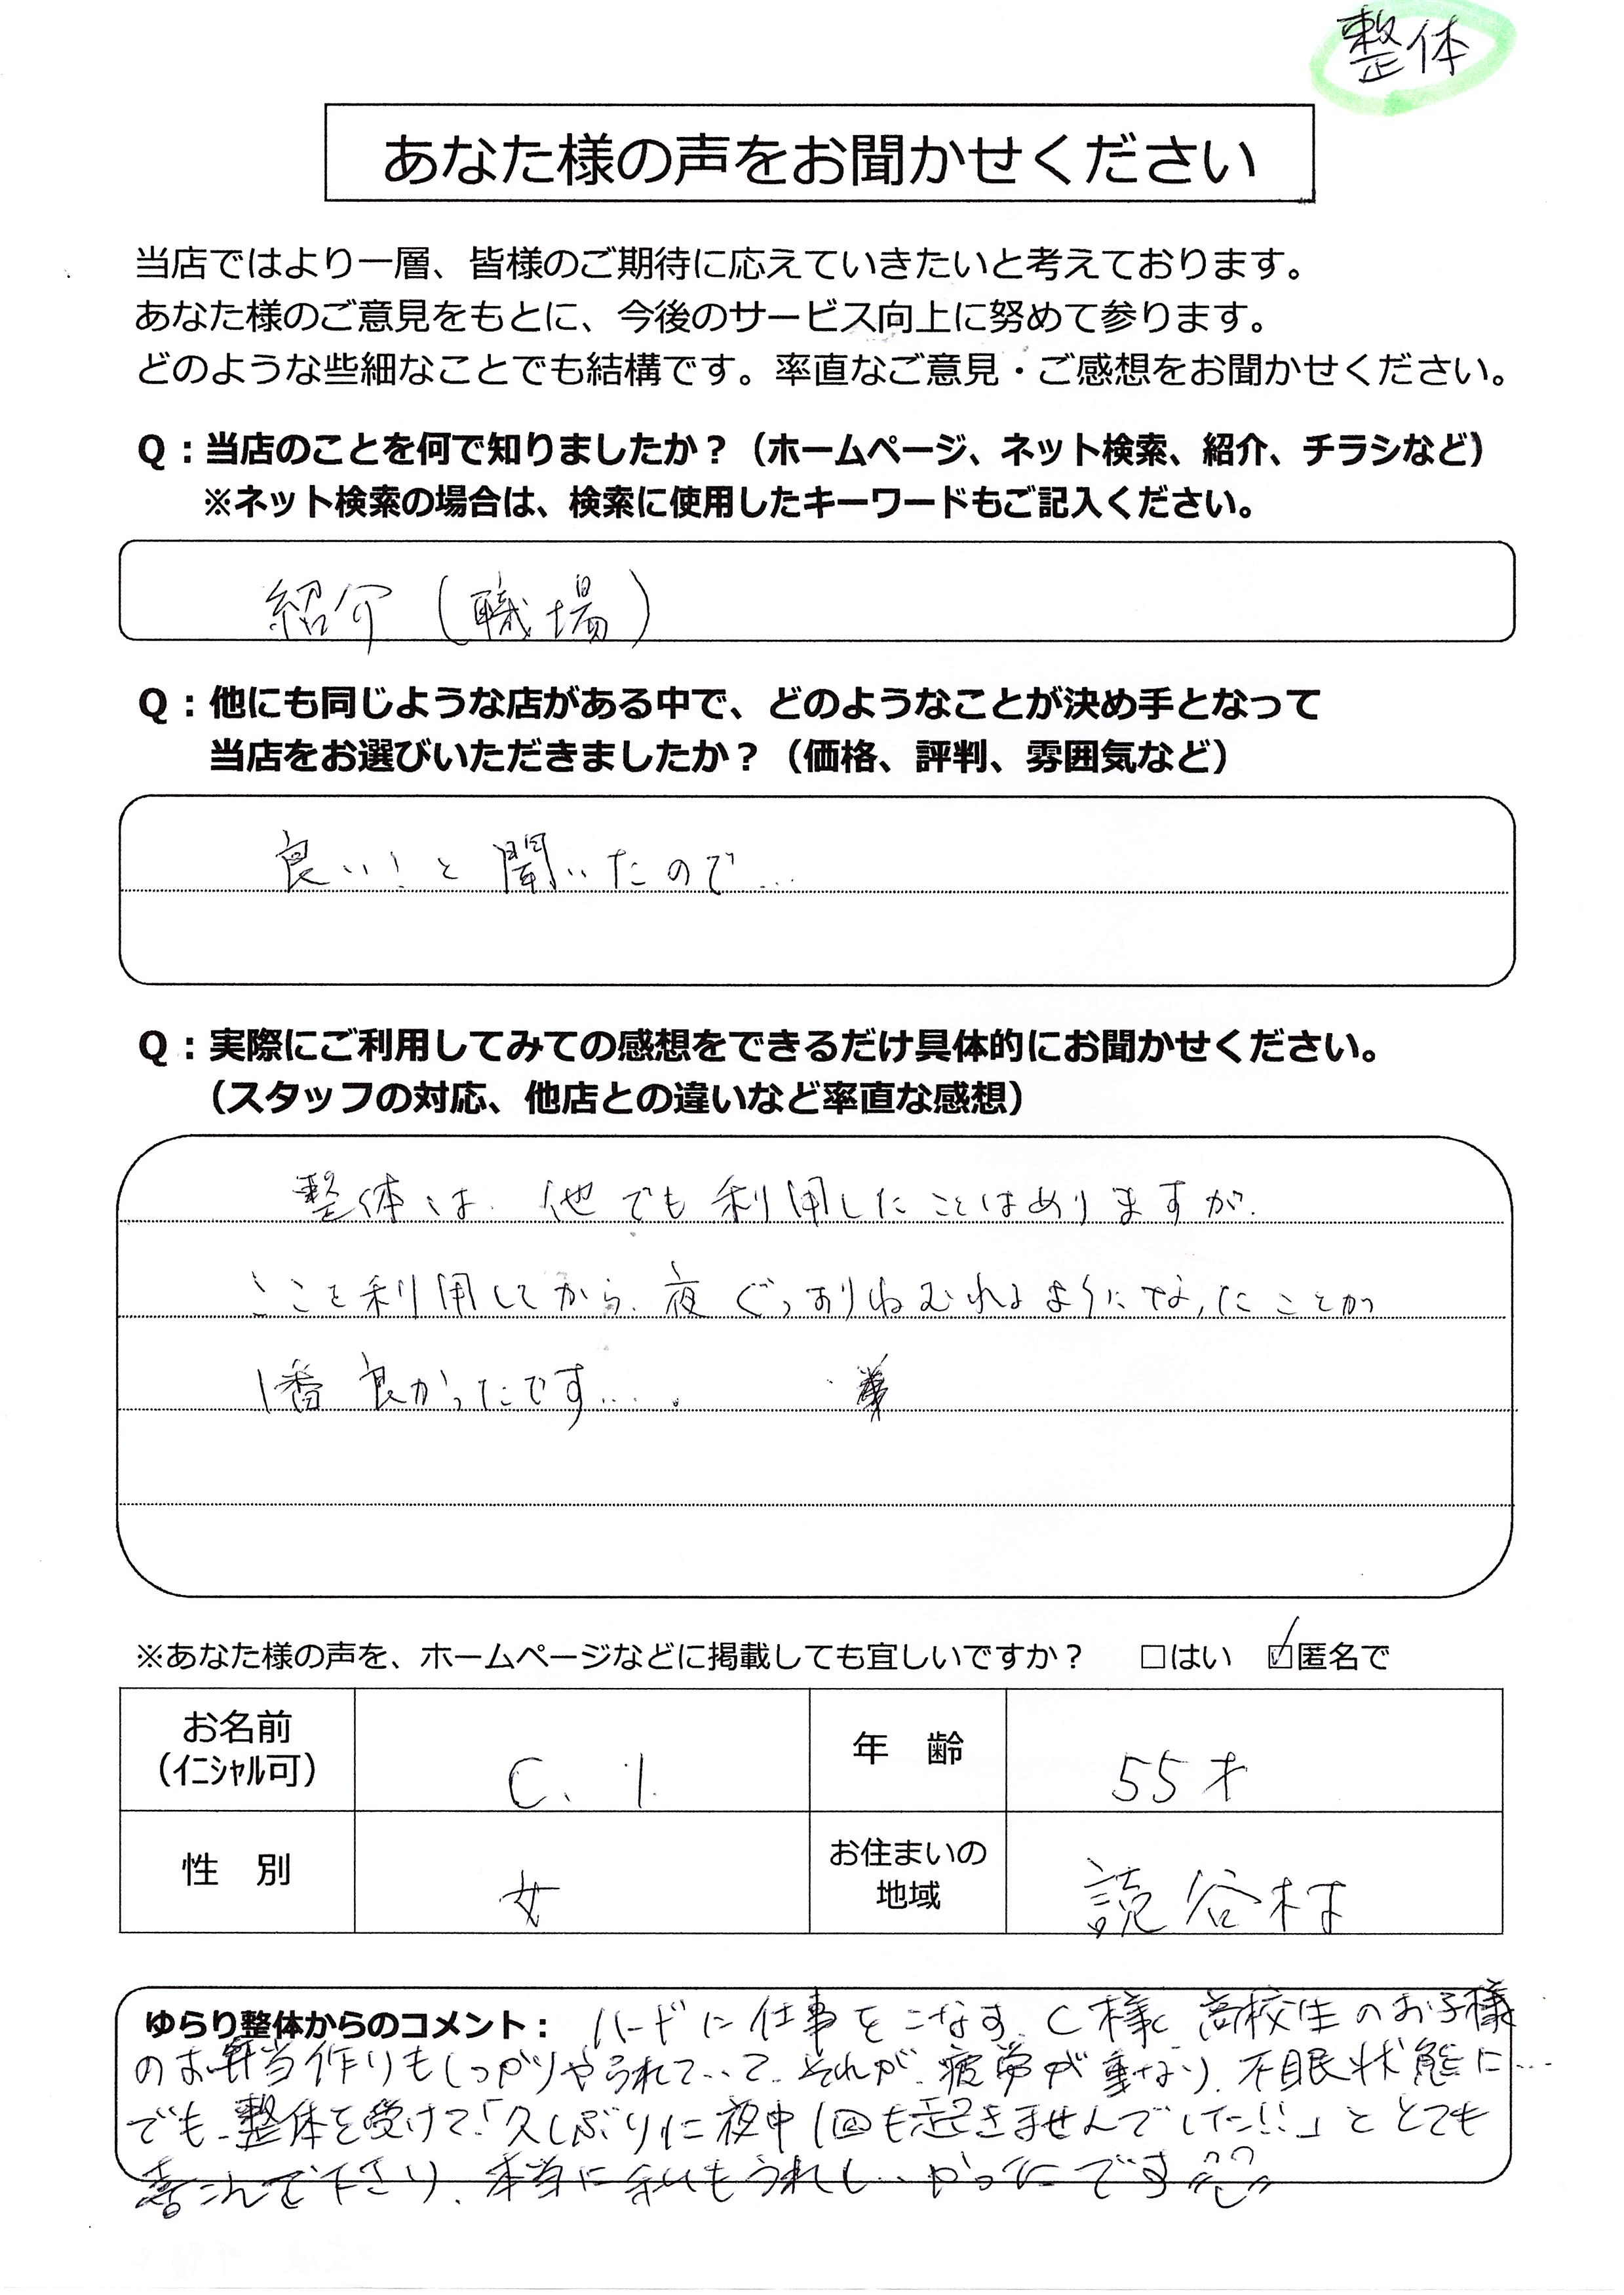 整体
あなた様の声をお聞かせください
当店ではより一層、皆様のご期待に応えていきたいと考えております。
あなた様のご意見をもとに、今後のサービス向上に努めて参ります。
どのような些細なことでも結構です。率直なご意見・ご感想をお聞かせください。
Q：当店のことを何で知りましたか？（ホームページ、ネット検索、紹介、チラシなど）
※ネット検索の場合は、検索に使用したキーワードもご記入ください。
紹介（職場）
Q：他にも同じような店がある中で、どのようなことが決め手となって
当店をお選びいただきましたか？（価格、評判、雰囲気など）
良い！と聞いたので…
Q：実際にご利用してみての感想をできるだけ具体的にお聞かせください。
（スタッフの対応、他店との違いなど率直な感想）
整体は、他でも利用したことはありますが、
ここを利用してから、夜ぐっすりねむれるようになったことが
1番良かったです…。
※あなた様の声を、ホームページなどに掲載しても宜しいですか？　□はい　☑匿名で
お名前
（イニシャル可）
C. I.
年　齢
55才
性　別
女
お住まいの
地域
読谷村
ゆらり整体からのコメント：ハードに仕事をこなす、C様。高校生のお子様
のお弁当作りもしっかりやられていて、それが、疲労が重なり、不眠状態に…
でも、整体を受けて「久しぶりに夜中1回も起きませんでした!!」ととても
喜こんで下さり、本当に私もうれしかったです^^